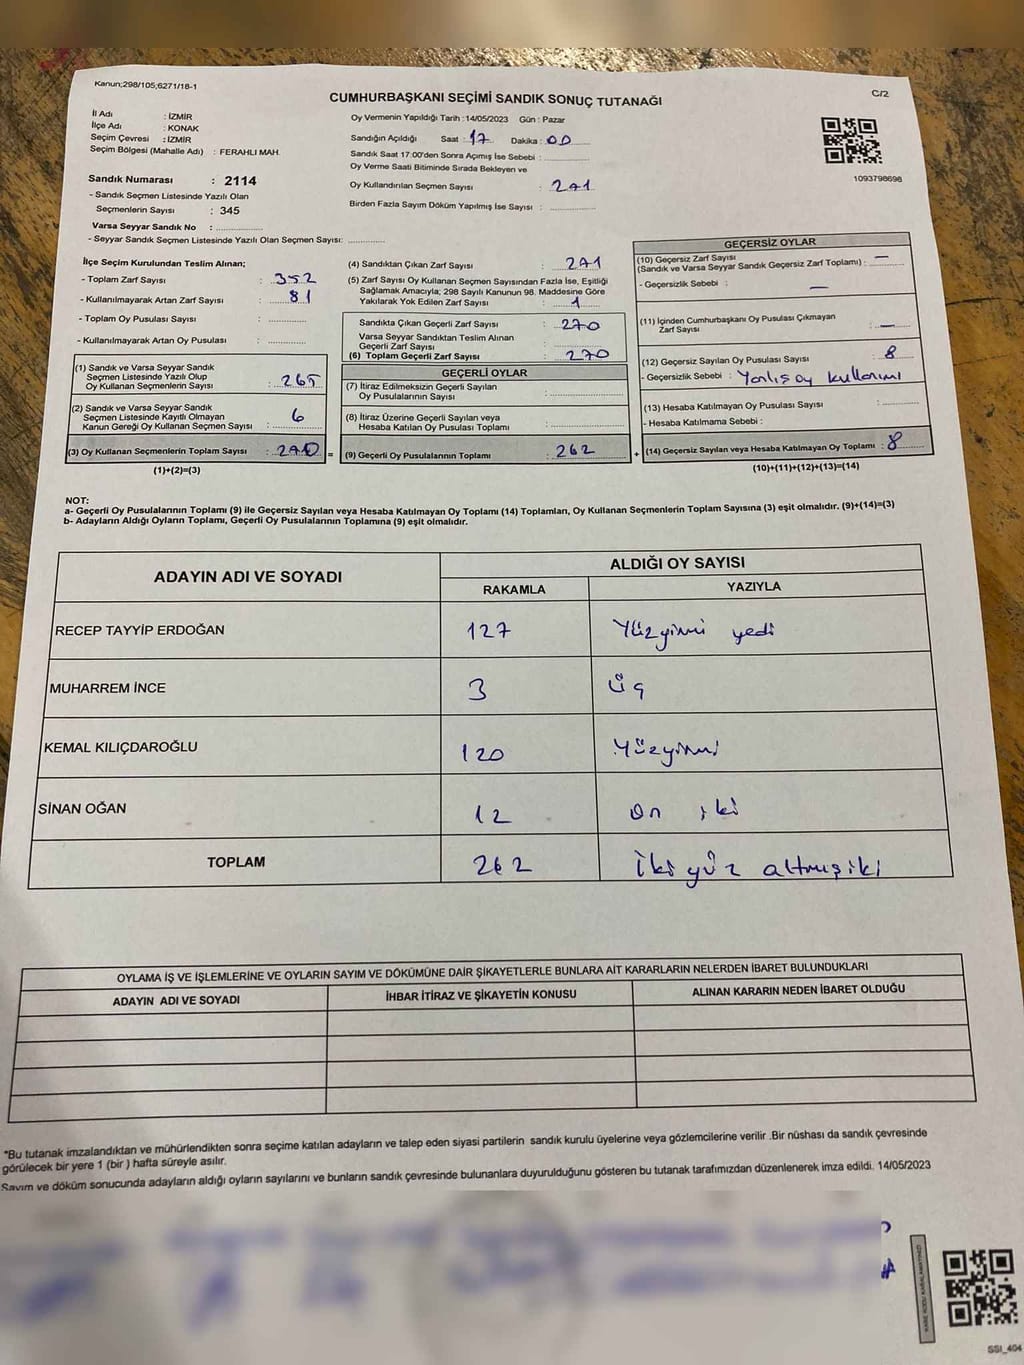 Kanun;298/105;6271/18-1
C/2
CUMHURBAŞKANI SEÇİMİ SANDIK SONUÇ TUTANAĞI
İl Adı : İZMİR
İlçe Adı : KONAK
Seçim Çevresi : İZMİR
Seçim Bölgesi (Mahalle Adı) : FERAHLI MAH.
Oy Vermenin Yapıldığı Tarih : 14/05/2023 Gün : Pazar
Sandığın Açıldığı Saat : 17 Dakika : 00
Sandık Saat 17:00'den Sonra Açımış İse Sebebi :
Oy Verme Saati Bitiminde Sırada Bekleyen ve
Oy Kullandırılan Seçmen Sayısı : 271
Birden Fazla Sayım Döküm Yapılmış İse Sayısı :
1093798698
Sandık Numarası : 2114
- Sandık Seçmen Listesinde Yazılı Olan
Seçmenlerin Sayısı : 345
Varsa Seyyar Sandık No :
- Seyyar Sandık Seçmen Listesinde Yazılı Olan Seçmen Sayısı:
İlçe Seçim Kurulundan Teslim Alınan;
- Toplam Zarf Sayısı : 352
- Kullanılmayarak Artan Zarf Sayısı : 81
- Toplam Oy Pusulası Sayısı :
- Kullanılmayarak Artan Oy Pusulası :
(1) Sandık ve Varsa Seyyar Sandık
Seçmen Listesinde Yazılı Olup
Oy Kullanan Seçmenlerin Sayısı : 265
(2) Sandık ve Varsa Seyyar Sandık
Seçmen Listesinde Kayıtlı Olmayan
Kanun Gereği Oy Kullanan Seçmen Sayısı : 6
(3) Oy Kullanan Seçmenlerin Toplam Sayısı : 270 =
(1)+(2)=(3)
(4) Sandıktan Çıkan Zarf Sayısı : 271
(5) Zarf Sayısı Oy Kullanan Seçmen Sayısından Fazla İse, Eşitliği
Sağlamak Amacıyla; 298 Sayılı Kanunun 98. Maddesine Göre
Yakılarak Yok Edilen Zarf Sayısı : 1
Sandıkta Çıkan Geçerli Zarf Sayısı : 270
Varsa Seyyar Sandıktan Teslim Alınan
Geçerli Zarf Sayısı :
(6) Toplam Geçerli Zarf Sayısı : 270
GEÇERLİ OYLAR
(7) İtiraz Edilmeksizin Geçerli Sayılan
Oy Pusulalarının Sayısı :
(8) İtiraz Üzerine Geçerli Sayılan veya
Hesaba Katılan Oy Pusulası Toplamı :
(9) Geçerli Oy Pusulalarının Toplamı : 262 +
GEÇERSİZ OYLAR
(10) Geçersiz Zarf Sayısı
(Sandık ve Varsa Seyyar Sandık Geçersiz Zarf Toplamı) : —
- Geçersizlik Sebebi : —
(11) İçinden Cumhurbaşkanı Oy Pusulası Çıkmayan
Zarf Sayısı : —
(12) Geçersiz Sayılan Oy Pusulası Sayısı : 8
- Geçersizlik Sebebi : Yanlış oy kullanımı
(13) Hesaba Katılmayan Oy Pusulası Sayısı :
- Hesaba Katılmama Sebebi :
(14) Geçersiz Sayılan veya Hesaba Katılmayan Oy Toplamı : 8
(10)+(11)+(12)+(13)=(14)
NOT:
a- Geçerli Oy Pusulalarının Toplamı (9) ile Geçersiz Sayılan veya Hesaba Katılmayan Oy Toplamı (14) Toplamları, Oy Kullanan Seçmenlerin Toplam Sayısına (3) eşit olmalıdır. (9)+(14)=(3)
b- Adayların Aldığı Oyların Toplamı, Geçerli Oy Pusulalarının Toplamına (9) eşit olmalıdır.
ADAYIN ADI VE SOYADI
ALDIĞI OY SAYISI
RAKAMLA YAZIYLA
RECEP TAYYİP ERDOĞAN 127 Yüzyirmi yedi
MUHARREM İNCE 3 Üç
KEMAL KILIÇDAROĞLU 120 Yüzyirmi
SİNAN OĞAN 12 on iki
TOPLAM 262 İkiyüz altmışiki
OYLAMA İŞ VE İŞLEMLERİNE VE OYLARIN SAYIM VE DÖKÜMÜNE DAİR ŞİKAYETLERLE BUNLARA AİT KARARLARIN NELERDEN İBARET BULUNDUKLARI
ADAYIN ADI VE SOYADI İHBAR İTİRAZ VE ŞİKAYETİN KONUSU ALINAN KARARIN NEDEN İBARET OLDUĞU
*Bu tutanak imzalandıktan ve mühürlendikten sonra seçime katılan adayların ve talep eden siyasi partilerin sandık kurulu üyelerine veya gözlemcilerine verilir .Bir nüshası da sandık çevresinde
görülecek bir yere 1 (bir ) hafta süreyle asılır.
Sayım ve döküm sonucunda adayların aldığı oyların sayılarını ve bunların sandık çevresinde bulunanlara duyurulduğunu gösteren bu tutanak tarafımızdan düzenlenerek imza edildi. 14/05/2023
KARE KODU KARALAMAYINIZ!
SSI_404